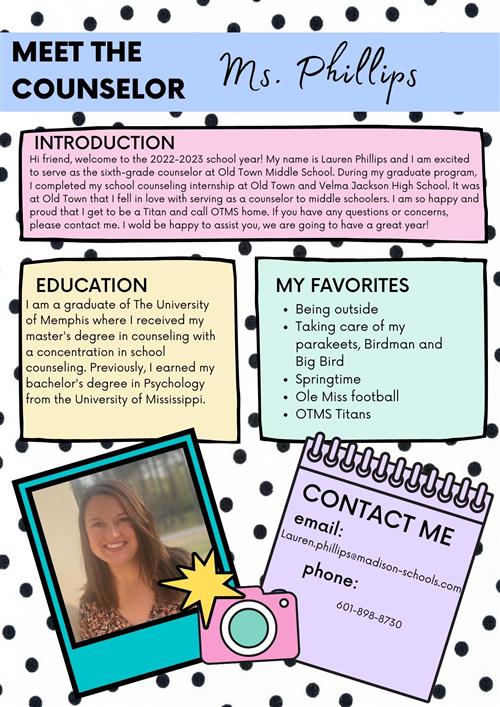 MEET THE
COUNSELOR
Ms. Phillips
INTRODUCTION
Hi friend, welcome to the 2022-2023 school year! My name is Lauren Phillips and I am excited
to serve as the sixth-grade counselor at Old Town Middle School. During my graduate program,
I completed my school counseling internship at Old Town and Velma Jackson High School. It was
at Old Town that I fell in love with serving as a counselor to middle schoolers. I am so happy and
proud that I get to be a Titan and call OTMS home. If you have any questions or concerns,
please contact me. I wold be happy to assist you, we are going to have a great year!
EDUCATION
I am a graduate of The University
of Memphis where I received my
master's degree in counseling with
a concentration in school
counseling. Previously, I earned my
bachelor's degree in Psychology
from the University of Mississippi.
MY FAVORITES
• Being outside
• Taking care of my
parakeets, Birdman and
Big Bird
• Springtime
• Ole Miss football
• OTMS Titans
CONTACT ME
email:
Lauren.phillips@madison-schools.com
phone:
601-898-8730